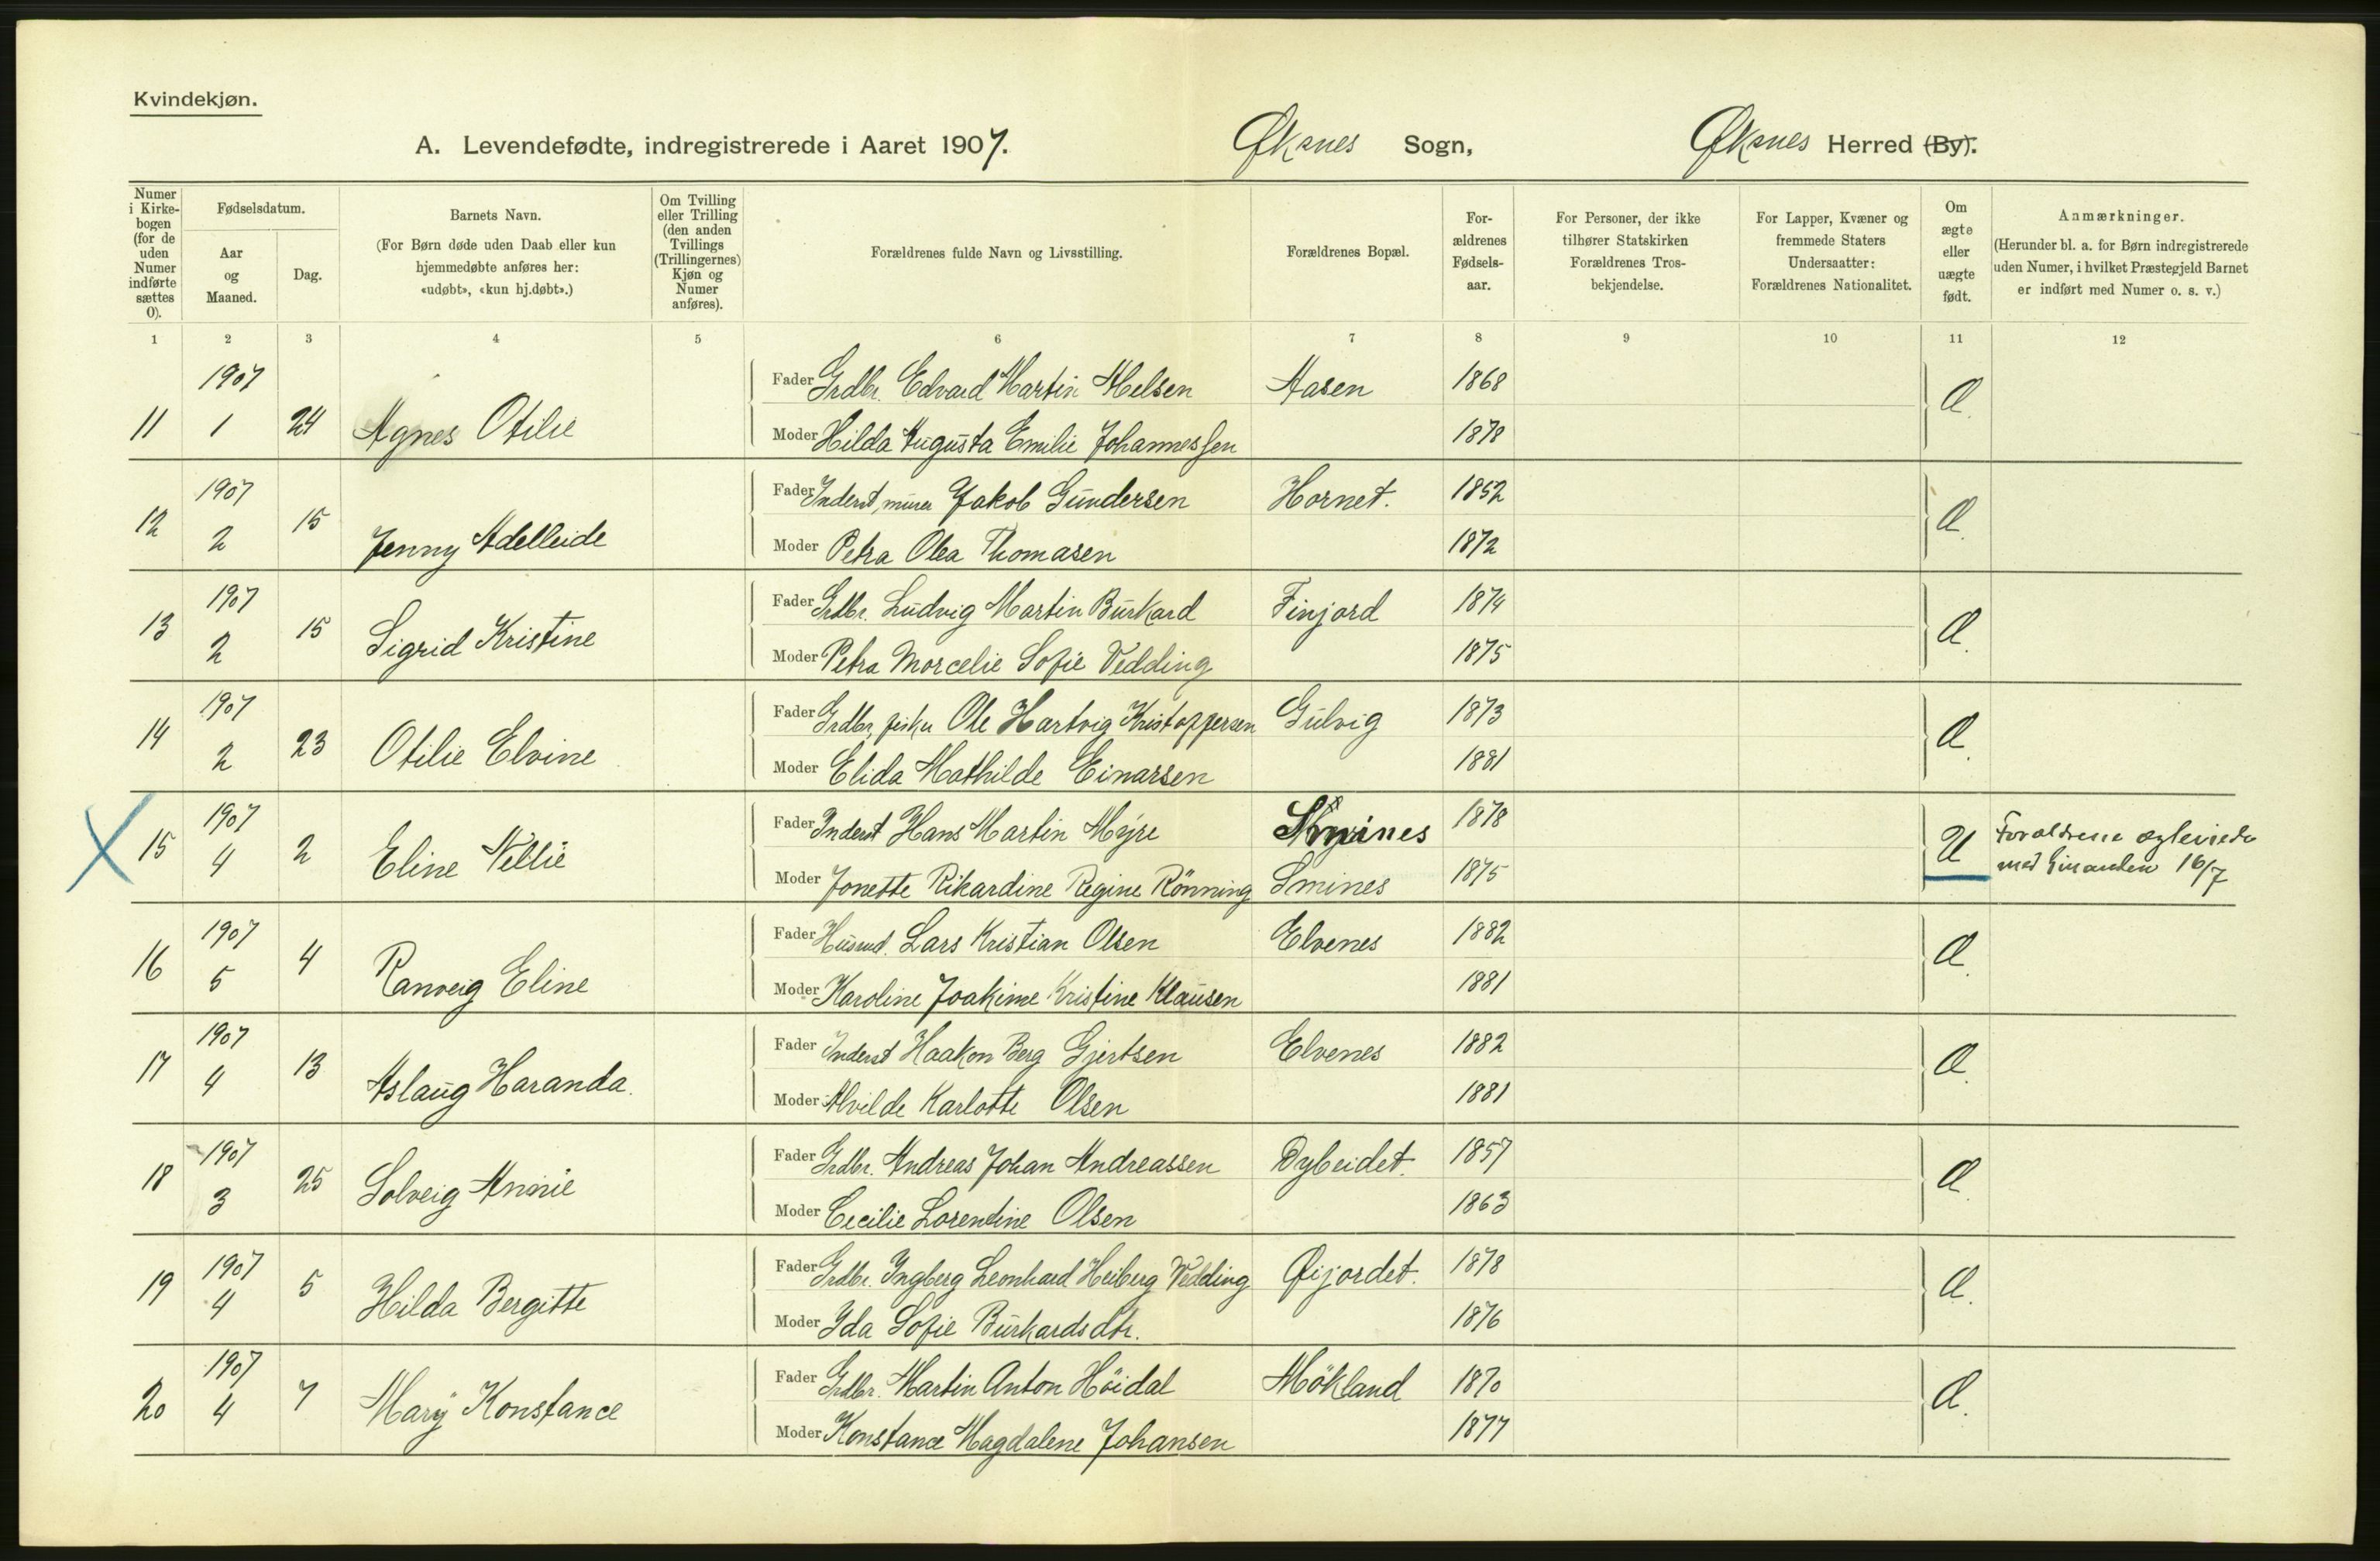 Kvindekjøn.
A. Levendefødte, indregistrerede i Aaret 1907. Øksnes Sogn, Øksnes Herred (By).
Numer i Kirkebogen (for de uden Numer indførte sættes 0).
Fødselsdatum.
Aar og Maaned.
Dag.
Barnets Navn.
(For Børn døde uden Daab eller kun hjemmedøbte anføres her: «udøbt», «kun hj.døbt».)
Om Tvilling eller Trilling (den anden Tvillings (Trillingernes) Kjøn og Numer anføres).
Forældrenes fulde Navn og Livsstilling.
Forældrenes Bopæl.
Forældrenes Fødselsaar.
For Personer, der ikke tilhører Statskirken Forældrenes Trosbekjendelse.
For Lapper, Kvæner og fremmede Staters Undersaatter: Forældrenes Nationalitet.
Om ægte eller uægte født.
Anmærkninger.
(Herunder bl. a. for Børn indregistrerede uden Numer, i hvilket Præstegjeld Barnet er indført med Numer o. s. v.)
1 2 3 4 5 6 7 8 9 10 11 12
11 1907 1 24 Agnes Otilie Fader Grdbr. Edvard Martin Melsen Aasen 1868 Æ.
Moder Hilda Augusta Emilie Johannessen 1878
12 1907 2 15 Jenny Adelleide Fader Inderst, murer Jakob Gundersen Hornet. 1852 Æ.
Moder Petra Olea Thomasen 1872
13 1907 2 15 Sigrid Kristine Fader Grdbr. Ludvig Martin Burkard Finjord 1874 Æ.
Moder Petra Morcelie Sofie Vedding 1875
14 1907 2 23 Otilie Elvine Fader Grdbr, fisker Ole Hartvig Kristoffersen Gulvig 1873 Æ.
Moder Elida Mathilde Einarsen 1881
15 1907 4 2 Eline Nellie Fader Inderst Hans Martin Myre 1878 U Forældrene ægteviede
Moder Jonette Rikardine Regine Rönning Smines 1875 med hinanden 16/7
16 1907 5 4 Ranveig Eline Fader Husmd. Lars Kristian Olsen Elvenes 1882 Æ.
Moder Karoline Joakime Kristine Klausen 1881
17 1907 4 13 Aslaug Haranda. Fader Inderst Haakon Berg Gjertsen Elvenes 1882 Æ.
Moder Alvilde Karlotte Olsen 1881
18 1907 3 25 Solveig Annie Fader Grdbr. Andreas Johan Andreassen Dybeidet. 1857 Æ.
Moder Cecilie Lorentine Olsen 1863
19 1907 4 5 Hilda Bergitte Fader Grdbr. Ingberg Leonhard Heiberg Vedding Øijordet. 1878 Æ.
Moder Ida Sofie Burkardsdtr. 1876
20 1907 4 7 Mary Konstance Fader Grdbr. Martin Anton Höidal Mökland 1870 Æ.
Moder Konstance Magdalene Johansen 1877